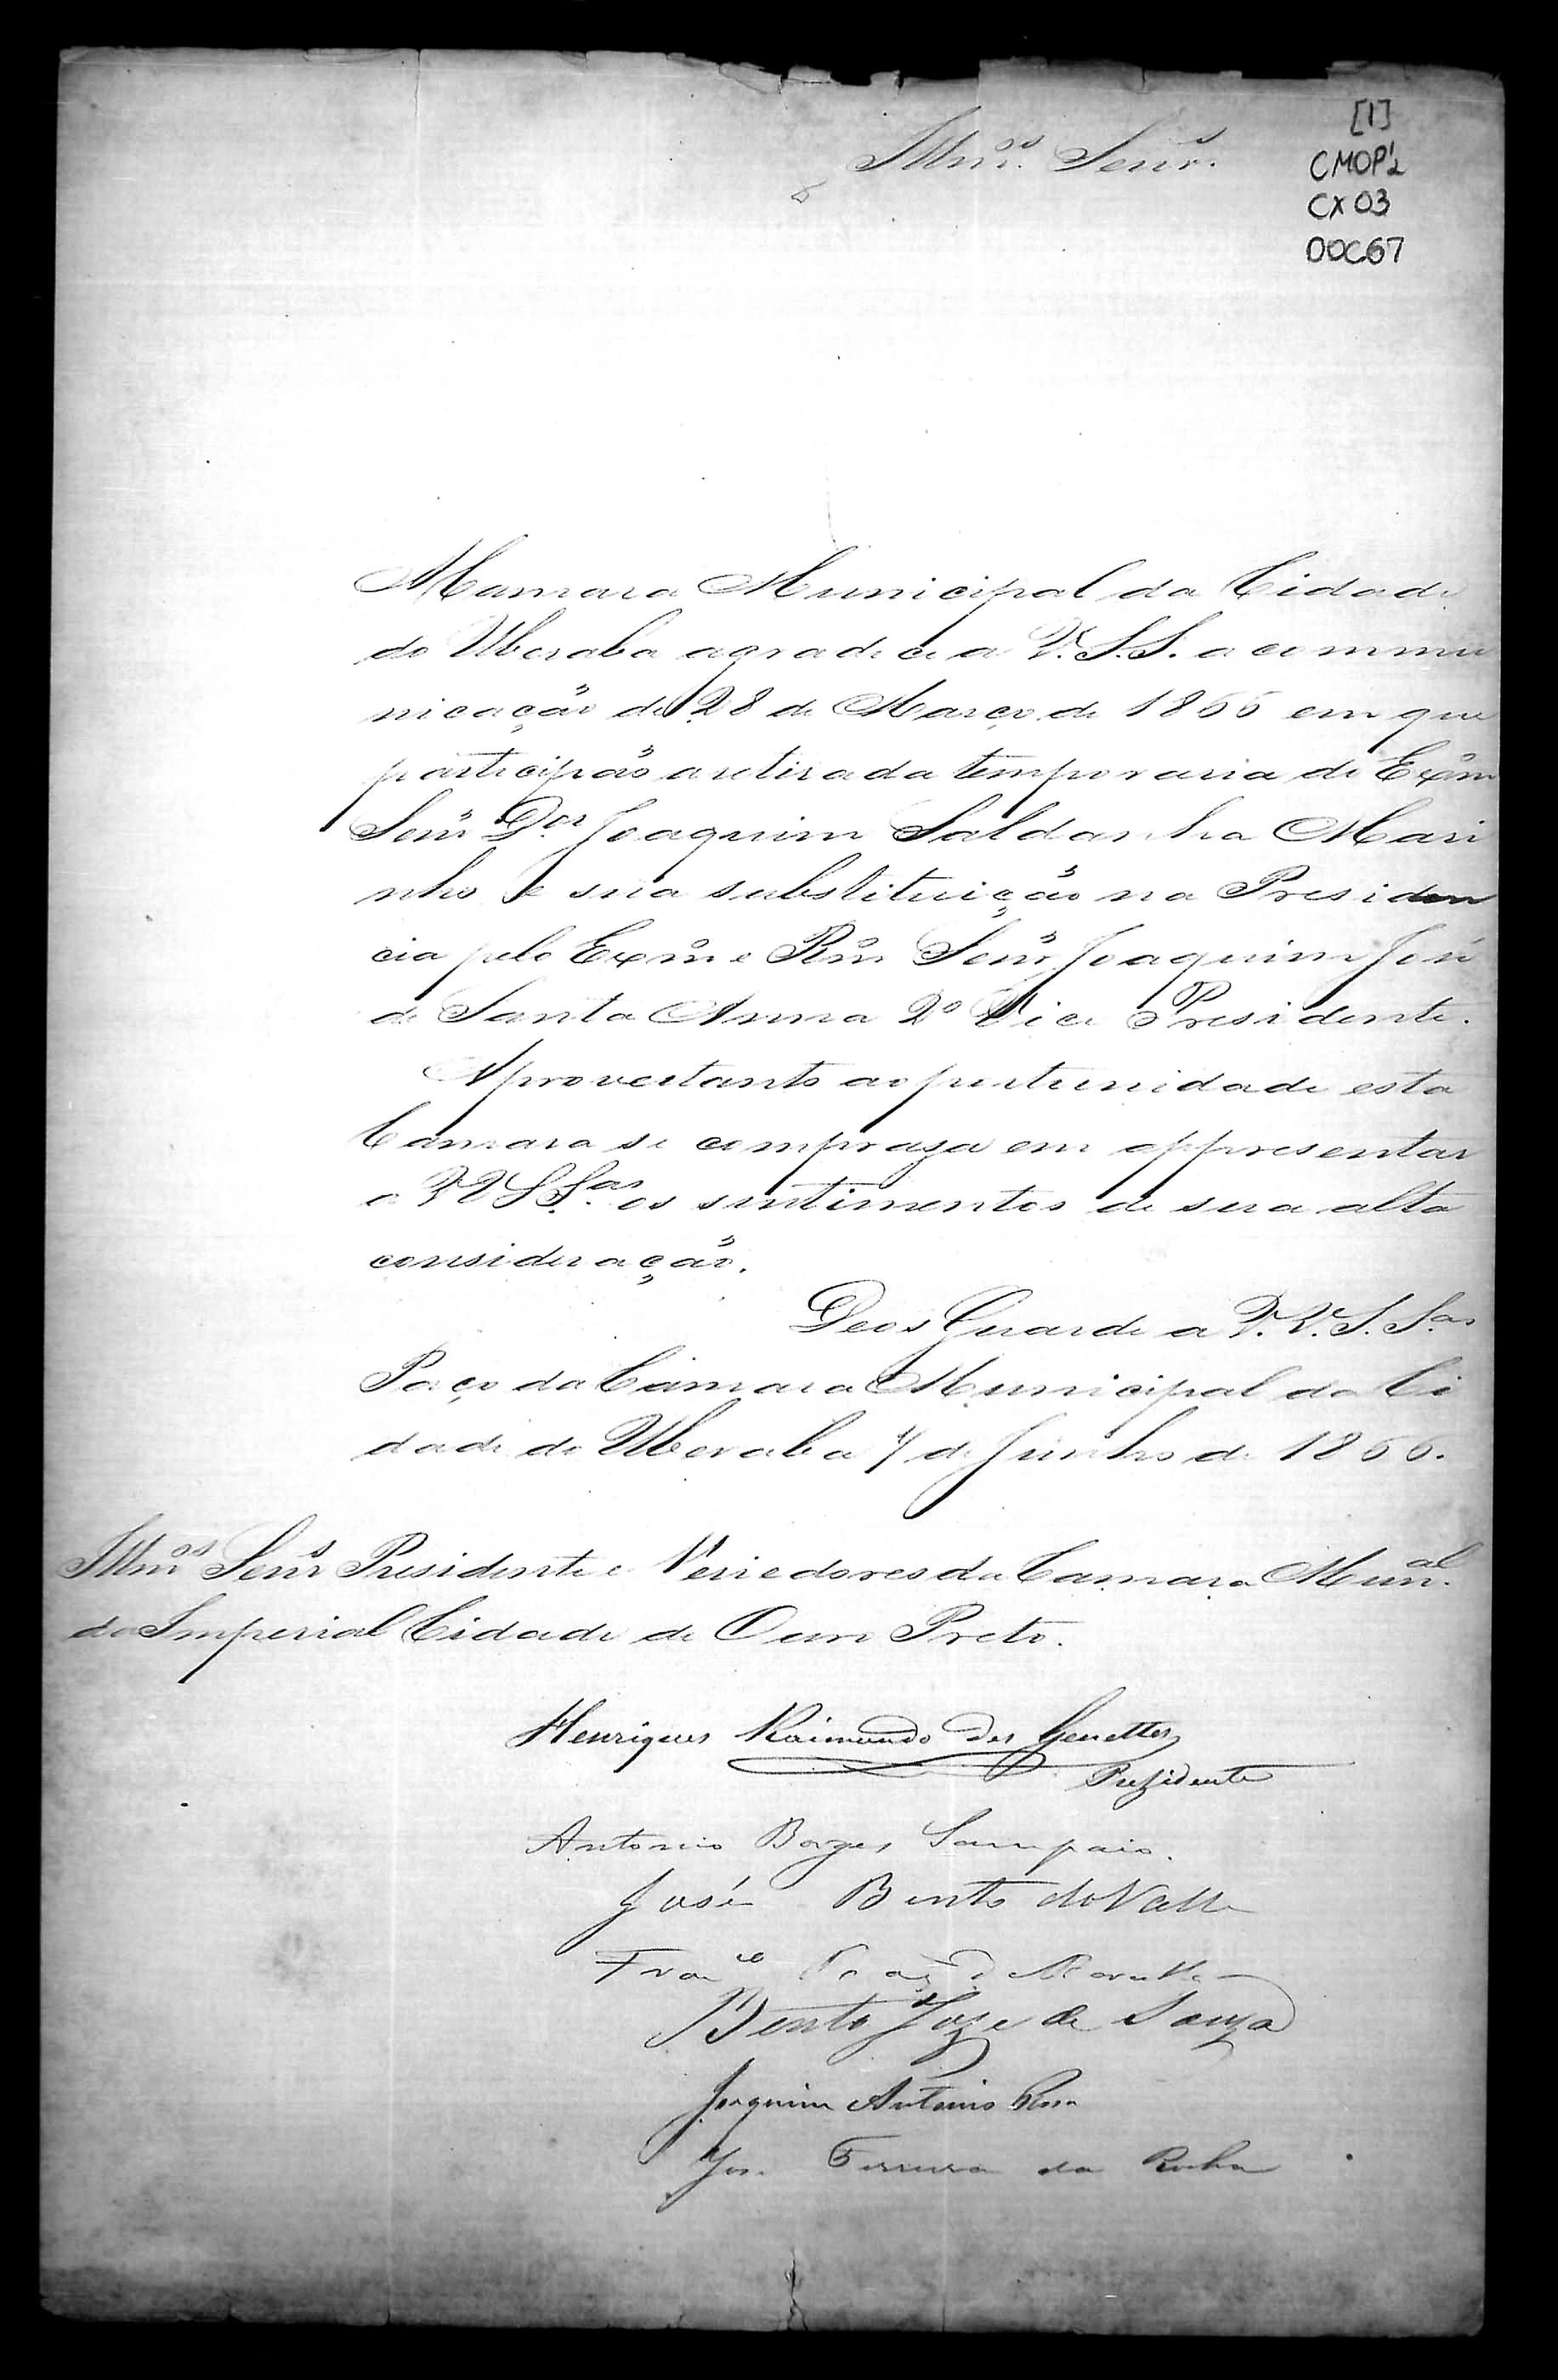 [1]
CMOP2
CX 03
DOC67
Illmos. Senrs.
A Camara Municipal da Cidade
do Uberaba agradece a V.S.S. a commu
nicação de 28 de Março de 1866 em que
participão a retirada temporaria do Exmo
Senr Dor Joaquim Saldanha Mari
nho e sua substituição na Presiden
cia pelo Exmo e Rmo Senr Joaquim José
de Santa Anna 2º Vice Presidente.
Aproveitanto a opurtunidade esta
Camara se compraza em appresentar
a VVSSas. os sentimentos de sua alta
consideração.
Deos Guarde a V.V.S.Sas
Paço da Camara Municipal da Ci
dade do Uberaba 7 de Junho de 1866.
Illmos Senrs Presidente e Veriadores da Camara Munal.
da Imperial Cidade de Ouro Preto.
Henriques Raimundo Des Genettes
Prezidente
Antonio Borges Sampaio.
José Bento do Valle
Franco de
Bento Joze de Souza
Joaquim Antonio Rosa
José Ferreira da Rocha